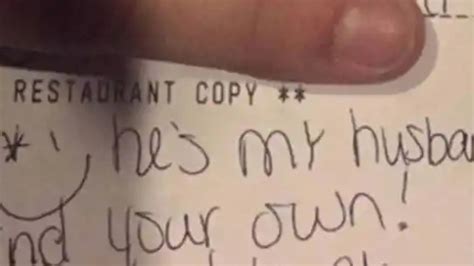 RESTAURANT COPY **
* he's my husba
nd your own!